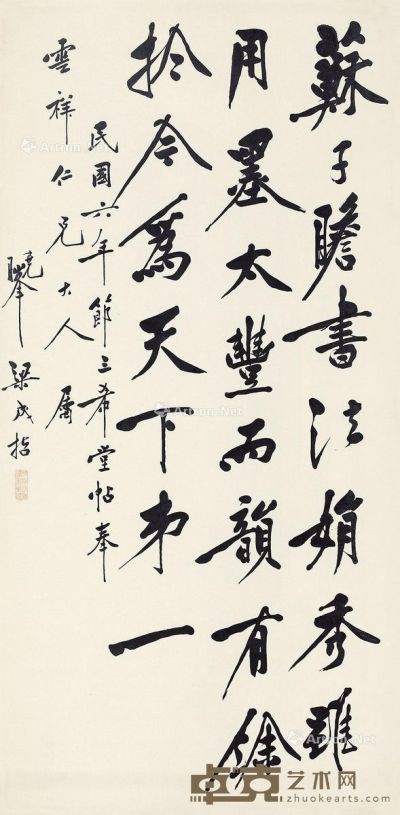 蘇子瞻書法娟秀雖
用墨太豐而韻有餘
於今爲天下第一
民國六年節三希堂帖奉
雲祥仁兄大人屬
曉峯 梁成
Artron.Net
卓克艺术网
zhuokearts.com